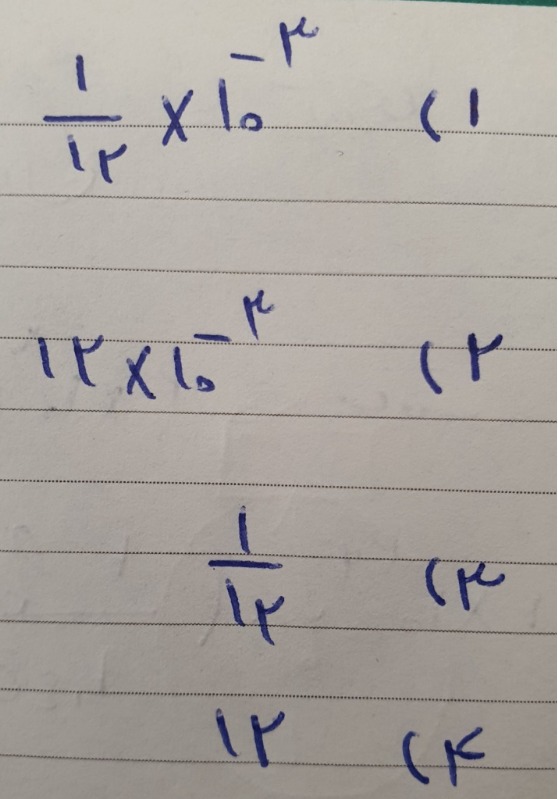 ۱) \frac{۱}{۱۲} × ۱۰^{-۳}
۲) ۱۲ × ۱۰^{-۳}
۳) \frac{۱}{۱۲}
۴) ۱۲